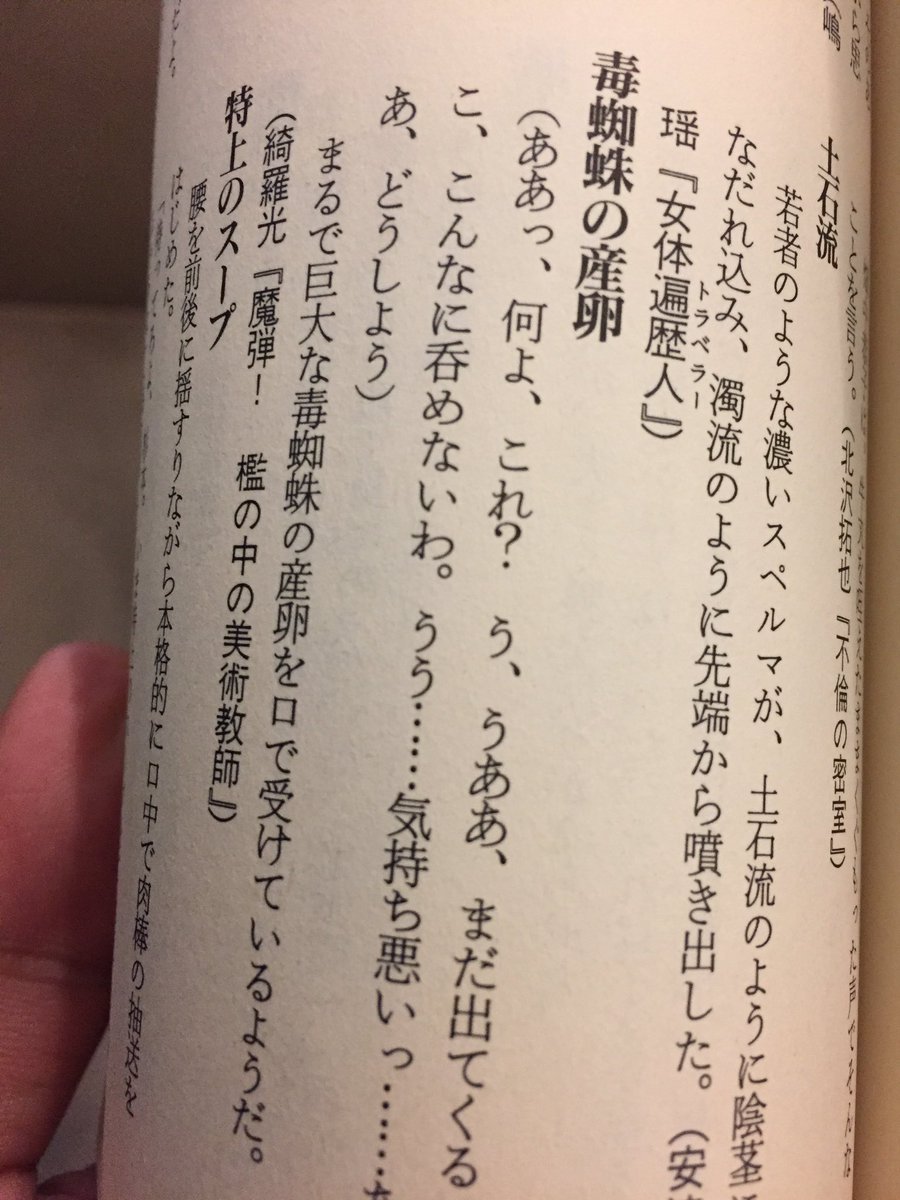 (嶋
こと を言う。(北沢拓也『不倫の密室』)
土石流
若者のような濃いスペルマが、土石流のように陰茎
なだれ込み、濁流のように先端から噴き出した。(安
瑶『女体遍歴人』)
トラベラー
毒蜘蛛の産卵
(ああっ、何よ、これ? う、うああ、まだ出てくる
こ、こんなに呑めないわ。うう……気持ち悪いっ……
あ、どうしよう)
まるで巨大な毒蜘蛛の産卵を口で受けているようだ。
(綺羅光『魔弾! 檻の中の美術教師』)
特上のスープ
腰を前後に揺すりながら本格的に口中で肉棒の抽送を
はじめた。